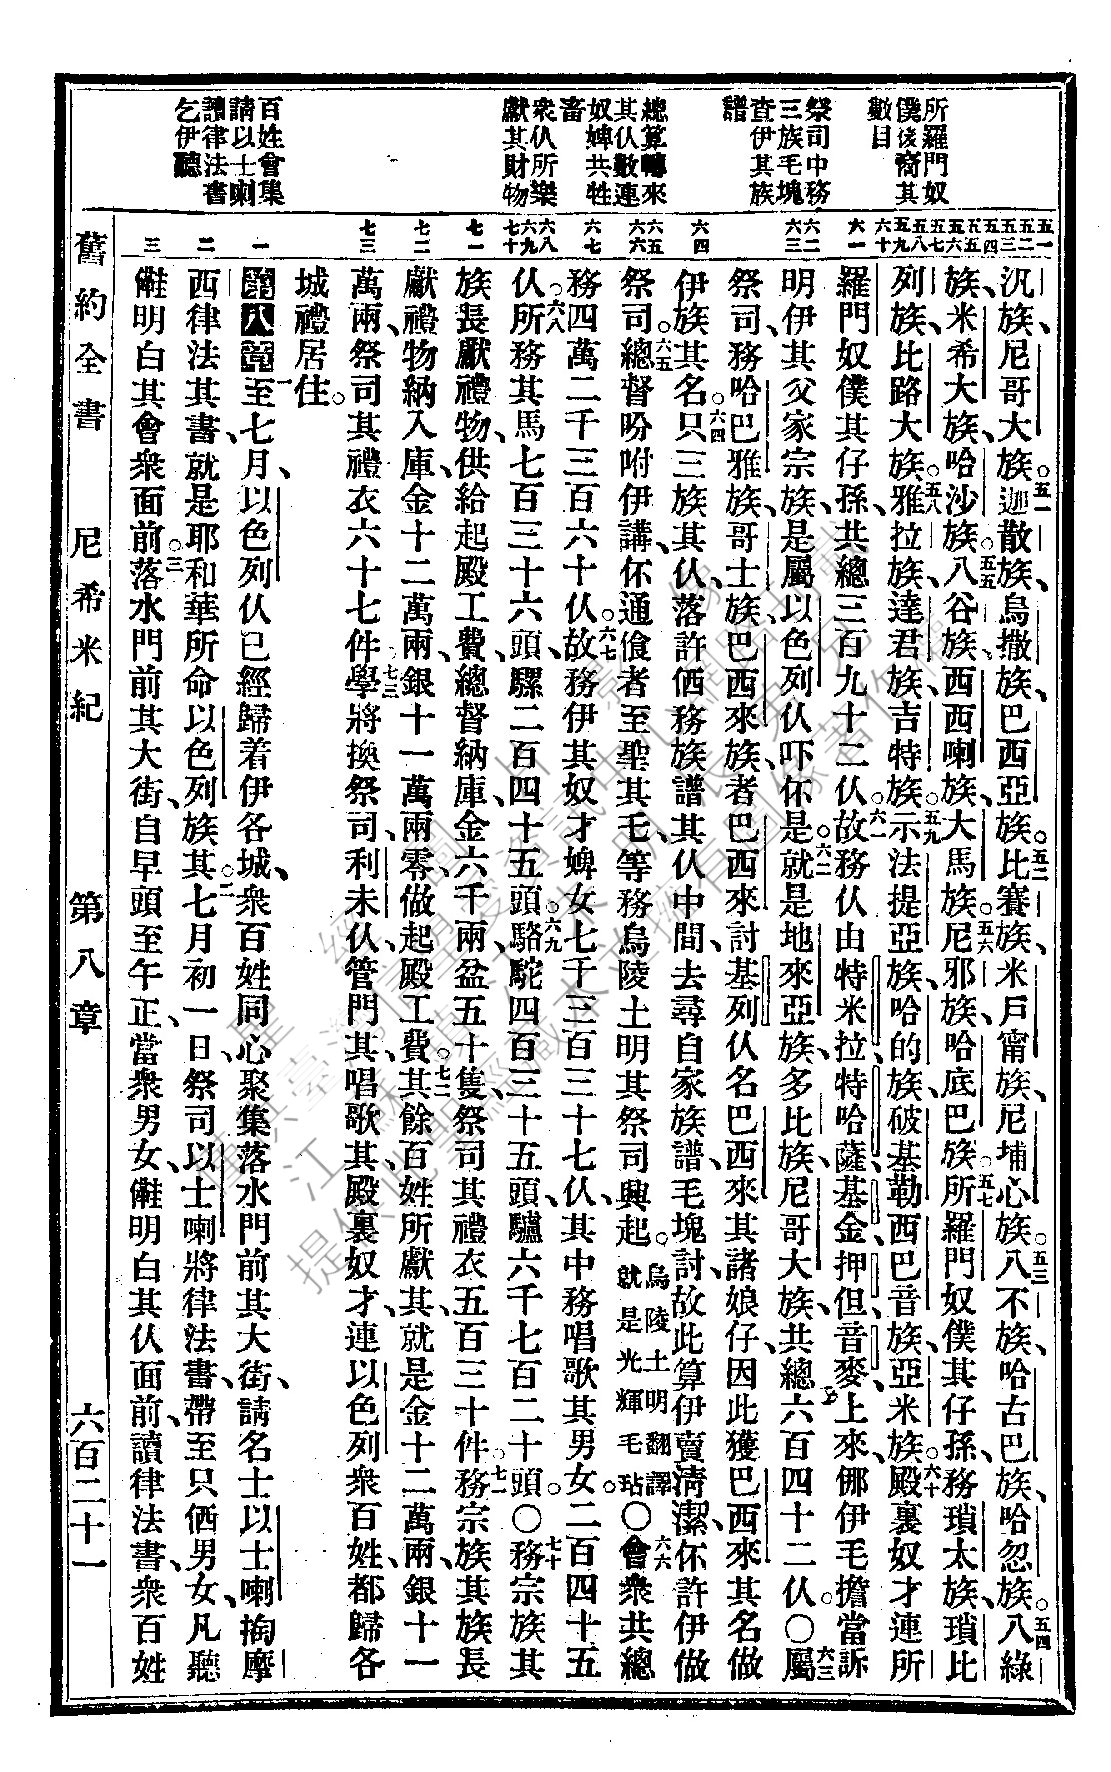 所羅門奴
僕後裔其
數目
祭司中務
三族毛塊
查伊其族
譜
總算轉來
其仈數連
奴婢共牲
畜
衆仈所樂
獻其財物
百姓會集
請以士喇
讀律法書
乞伊聽
五一 五二 五三 五四 五五 五六 五七 五八 五九 六十 六一 六二 六三 六四 六五 六六 六七 六八 六九 七十 七一 七二 七三 一 二 三
汎族、尼哥大族。五一迦散族、烏撒族、巴西亞族。五二比賽族、米戶甯族、尼埔心族。五三八不族、哈古巴族、哈忽族。五四八綠
族、米希大族、哈沙族。五五八谷族、西西喇族、大馬族。五六尼邪族、哈底巴族。五七所羅門奴僕其仔孫、務瑣太族、瑣比
列族、比路大族。五八雅拉族、達君族、吉特族。五九示法提亞族、哈的族、破基勒西巴音族、亞米族。六十殿裏奴才連所
羅門奴僕其仔孫、共總三百九十二仈。六一故務仈由特米拉、特哈薩、基金、押但、音麥、上來、㑚伊毛擔當訴
明伊其父家宗族、是屬以色列仈吓伓是。六二就是地來亞族、多比族、尼哥大族、共總六百四十二仈。〇六三屬
祭司、務哈巴雅族、哥士族、巴西來族、者巴西來討基列仈名巴西來其諸娘仔、因此獲巴西來其名做
伊族其名。六四只三族其仈、落許㑚務族譜其仈中間、去尋自家族譜、毛塊討、故此算伊賣淸潔、伓許伊做
祭司。六五總督吩咐伊講、伓通飡者至聖其毛、等務烏陵土明其祭司興起。烏陵土明翻譯就是光輝毛玷〇六六會衆共總
務四萬二千三百六十仈。六七故務伊其奴才婢女七千三百三十七仈、其中務唱歌其男女、二百四十五
仈。六八所務其馬七百三十六頭、騾二百四十五頭。六九駱駝四百三十五頭、驢六千七百二十頭。〇七十務宗族其
族長獻禮物、供給起殿工費、總督納庫、金六千兩、盆五十隻、祭司其禮衣五百三十件。七一務宗族其族長
獻禮物納入庫、金十二萬兩、銀十一萬兩零、做起殿工費。七二其餘百姓所獻其、就是金十二萬兩、銀十一
萬兩、祭司其禮衣六十七件。七三學將換祭司、利未仈、管門其、唱歌其、殿裏奴才、連以色列衆百姓、都歸各
城禮居住。
第八章一至七月、以色列仈已經歸着伊各城、衆百姓同心聚集落水門前其大街、請名士以士喇、掏摩
西律法其書、就是耶和華所命以色列族其。二七月初一日、祭司以士喇將律法書、帶至只㑚男女、凡聽
㒰明白其會衆面前。三落水門前其大街、自早頭至午正、當衆男女、㒰明白其仈面前、讀律法書、衆百姓
舊約全書 尼希米紀 第八章 六百二十一